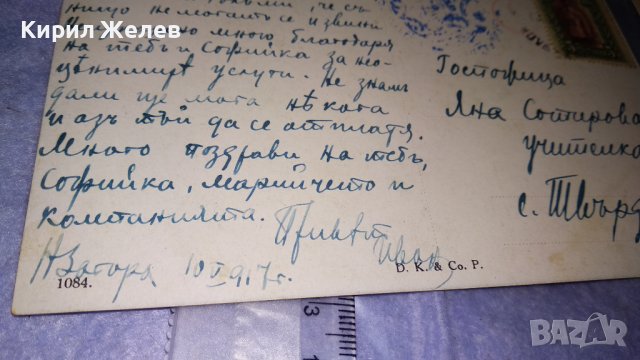 Кирил Желев
нищо не
много благодаря
на тебъ и Софийка за нео-
ценимите услуги. Не знамъ
дали ще мога нѣкога
и азъ тъй да се отплатя.
Много поздрави на тебъ,
Софийка, Марийчето и
компанията. Привет
Иван
Н Загора 10 V 917 г.
Госпожица
Яна Сотирова
учителка
с. Твърд
1084.
D. K. & Co. P.
3
BAZAR.bg